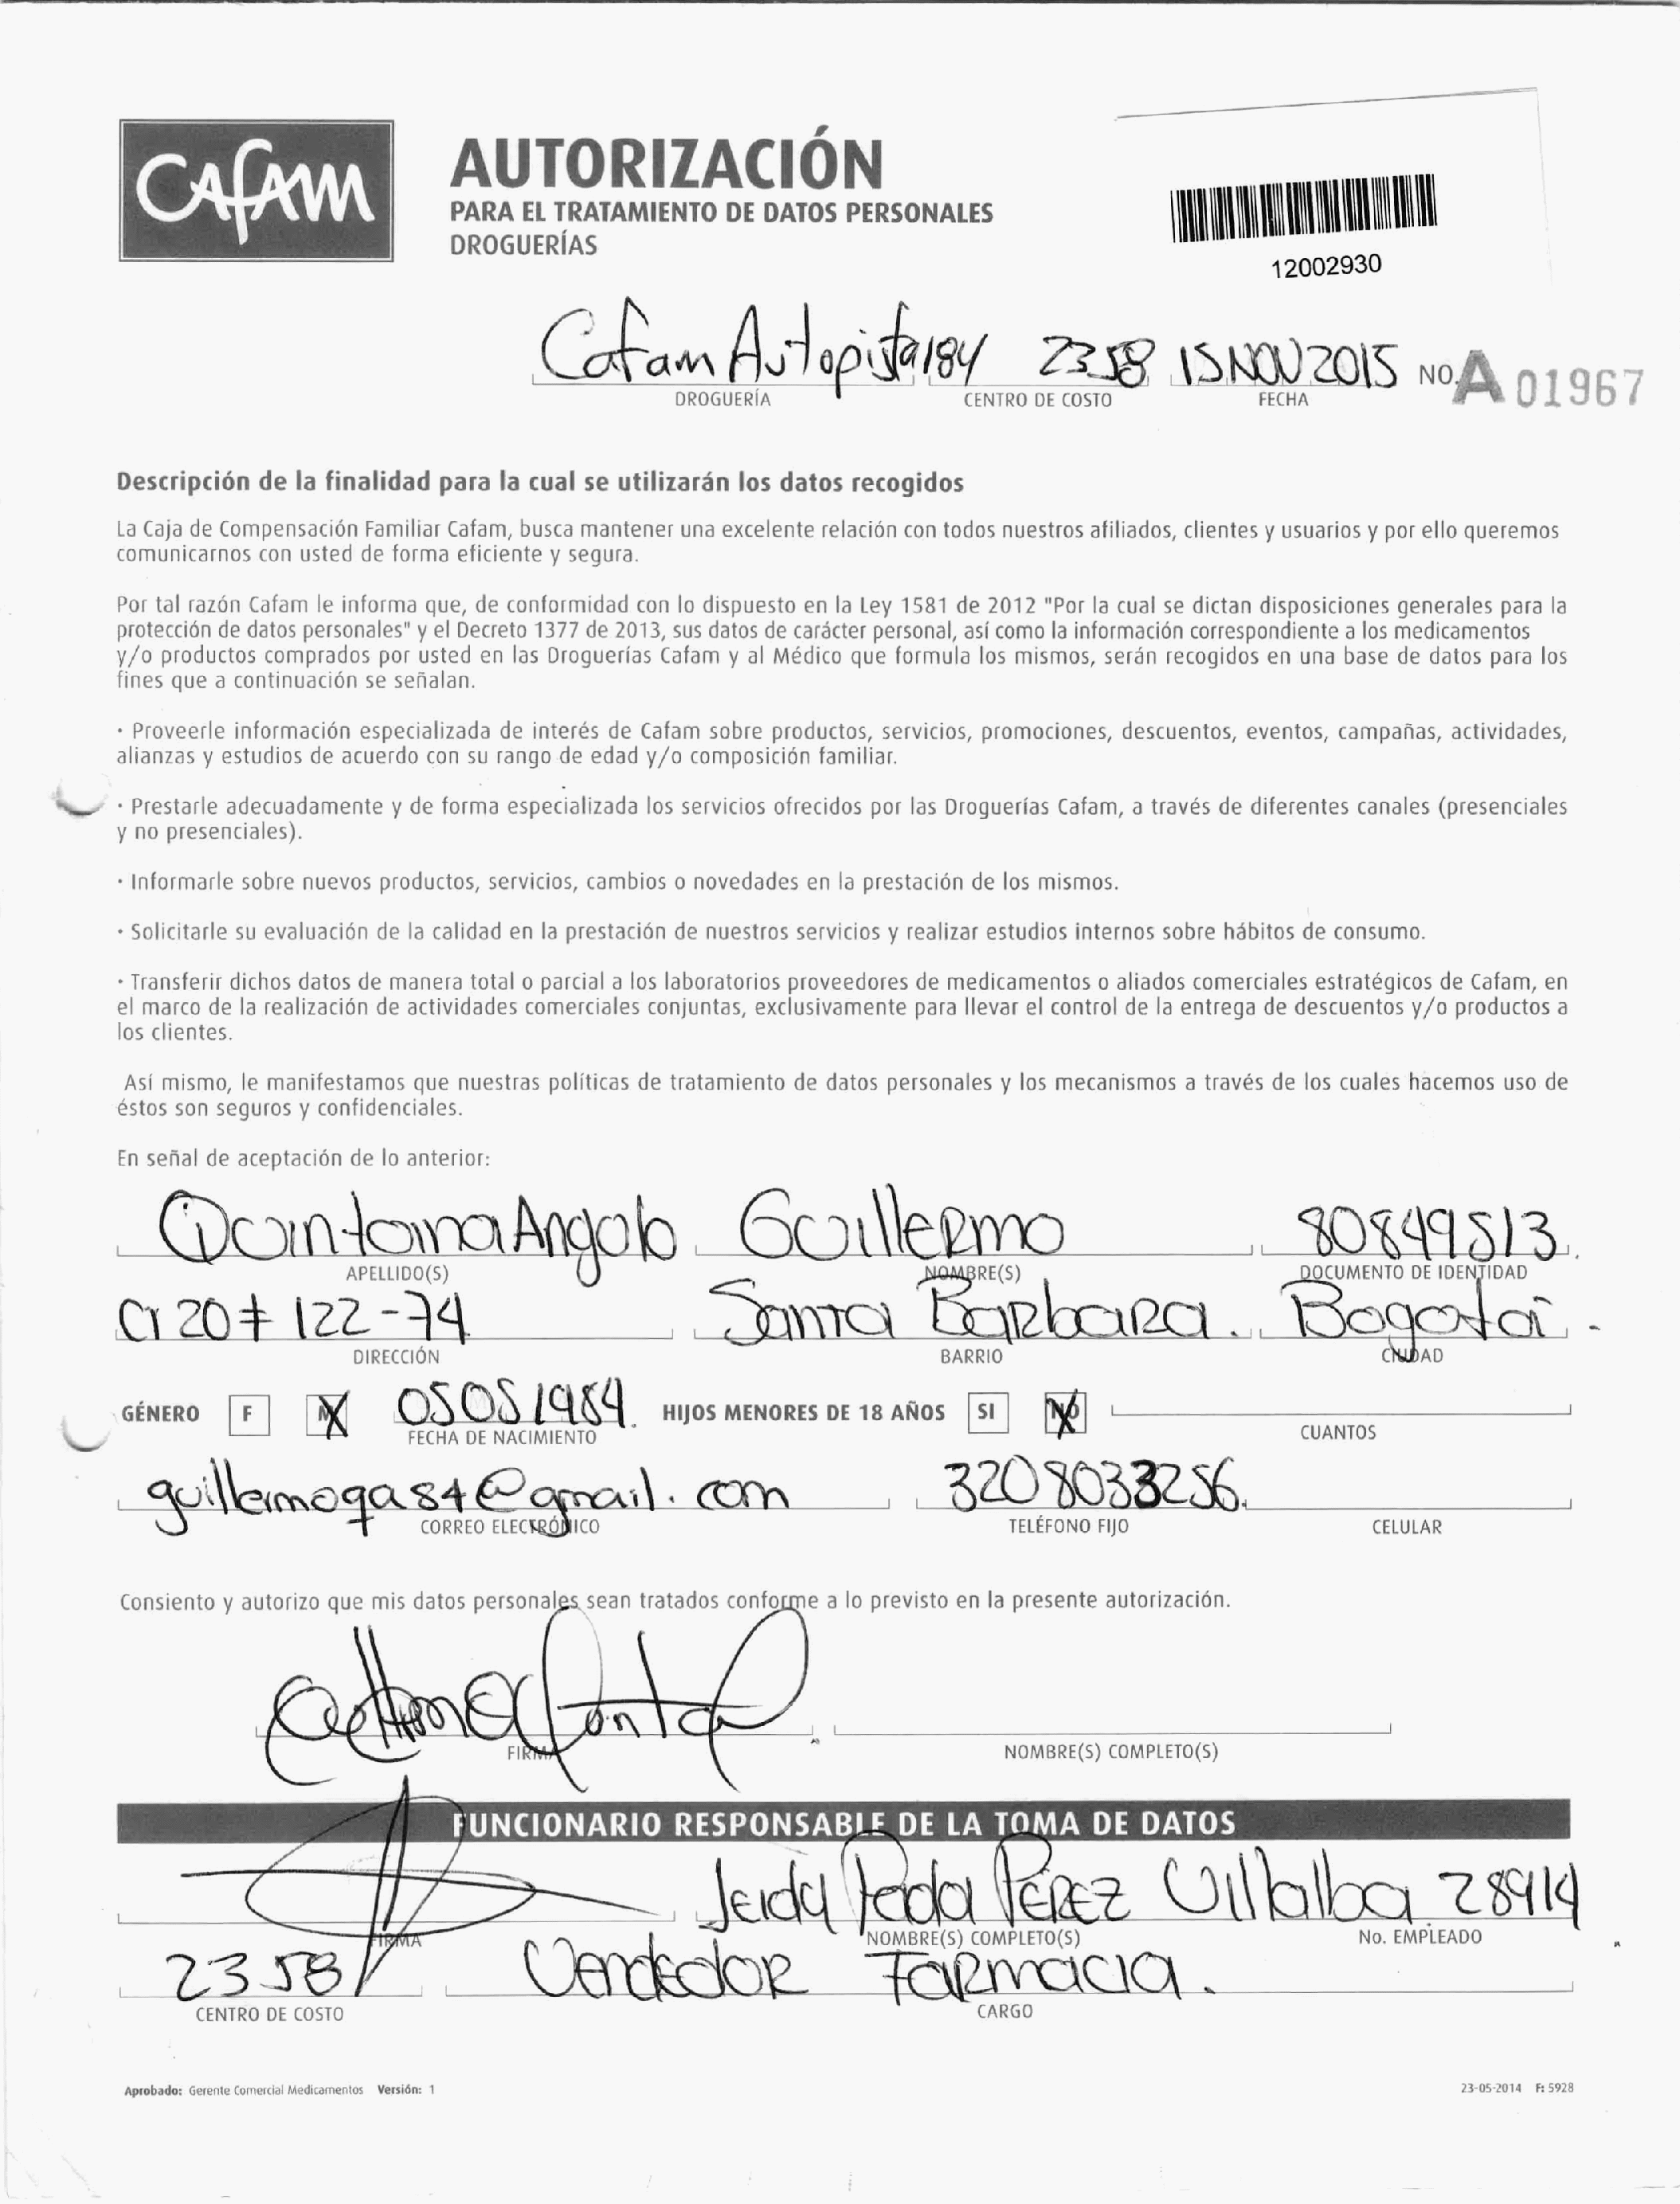 CAFAM
AUTORIZACIÓN
PARA EL TRATAMIENTO DE DATOS PERSONALES
DROGUERÍAS
12002930
Cafam Autopista 184 2358 15 NOV 2015 NO. A 01967
DROGUERÍA CENTRO DE COSTO FECHA
Descripción de la finalidad para la cual se utilizarán los datos recogidos
La Caja de Compensación Familiar Cafam, busca mantener una excelente relación con todos nuestros afiliados, clientes y usuarios y por ello queremos
comunicarnos con usted de forma eficiente y segura.
Por tal razón Cafam le informa que, de conformidad con lo dispuesto en la Ley 1581 de 2012 "Por la cual se dictan disposiciones generales para la
protección de datos personales" y el Decreto 1377 de 2013, sus datos de carácter personal, así como la información correspondiente a los medicamentos
y/o productos comprados por usted en las Droguerías Cafam y al Médico que formula los mismos, serán recogidos en una base de datos para los
fines que a continuación se señalan.
· Proveerle información especializada de interés de Cafam sobre productos, servicios, promociones, descuentos, eventos, campañas, actividades,
alianzas y estudios de acuerdo con su rango de edad y/o composición familiar.
· Prestarle adecuadamente y de forma especializada los servicios ofrecidos por las Droguerías Cafam, a través de diferentes canales (presenciales
y no presenciales).
· Informarle sobre nuevos productos, servicios, cambios o novedades en la prestación de los mismos.
· Solicitarle su evaluación de la calidad en la prestación de nuestros servicios y realizar estudios internos sobre hábitos de consumo.
· Transferir dichos datos de manera total o parcial a los laboratorios proveedores de medicamentos o aliados comerciales estratégicos de Cafam, en
el marco de la realización de actividades comerciales conjuntas, exclusivamente para llevar el control de la entrega de descuentos y/o productos a
los clientes.
Así mismo, le manifestamos que nuestras políticas de tratamiento de datos personales y los mecanismos a través de los cuales hacemos uso de
éstos son seguros y confidenciales.
En señal de aceptación de lo anterior:
Quintana Angulo Guillermo 80849513
APELLIDO(S) NOMBRE(S) DOCUMENTO DE IDENTIDAD
Cr 20 # 122-74 Santa Barbara. Bogotá
DIRECCIÓN BARRIO CIUDAD
GÉNERO F M 05051984 HIJOS MENORES DE 18 AÑOS SI NO
FECHA DE NACIMIENTO CUANTOS
guillermoqa84@gmail.com 3208033256
CORREO ELECTRÓNICO TELÉFONO FIJO CELULAR
Consiento y autorizo que mis datos personales sean tratados conforme a lo previsto en la presente autorización.
FIRMA NOMBRE(S) COMPLETO(S)
FUNCIONARIO RESPONSABLE DE LA TOMA DE DATOS
Jeidy PÉREZ Villalba 28914
FIRMA NOMBRE(S) COMPLETO(S) No. EMPLEADO
2358 Vendedor Farmacia.
CENTRO DE COSTO CARGO
Aprobado: Gerente Comercial Medicamentos Versión: 1 23-05-2014 F: 5928